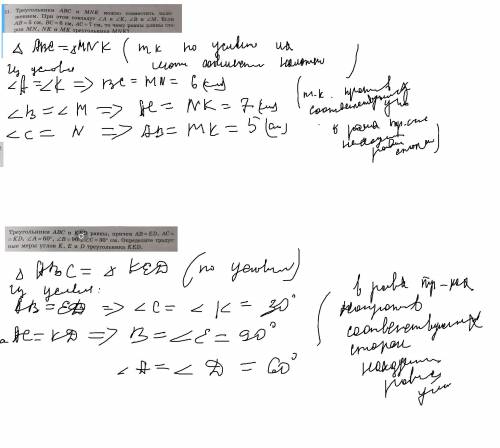 21. Треугольники ABC и MNK можно совместить наложением. При этом совпадут ∠A и ∠K, ∠B и ∠M. Если
AB = 5 см, BC = 6 см, AC = 7 см, то чему равны длины сторон MN, NK и MK треугольника MNK?
△ ABC = △ MNK ( т.к по условию их
Из условия
∠A = ∠K => BC = MN = 6 (см)
∠B = ∠M => AC = NK = 7 (см)
∠C = N => AB = MK = 5 (см)
( т.к. против
соответствующих
в равных
находятся
равные стороны)
Треугольники ABC и KED равны, причем AB = ED, AC =
= KD, ∠A = 60°, ∠B = 90°, ∠C = 30° см. Определите градусные меры углов K, E и D треугольника KED.
△ ABC = △ KED (по условию)
Из условия:
AB = ED => ∠C = ∠K = 30°
AC = KD => B = ∠E = 90°
∠A = ∠D = 60°
в равных тр-ках
напротив
соответствующих
сторон
находятся
равные
углы